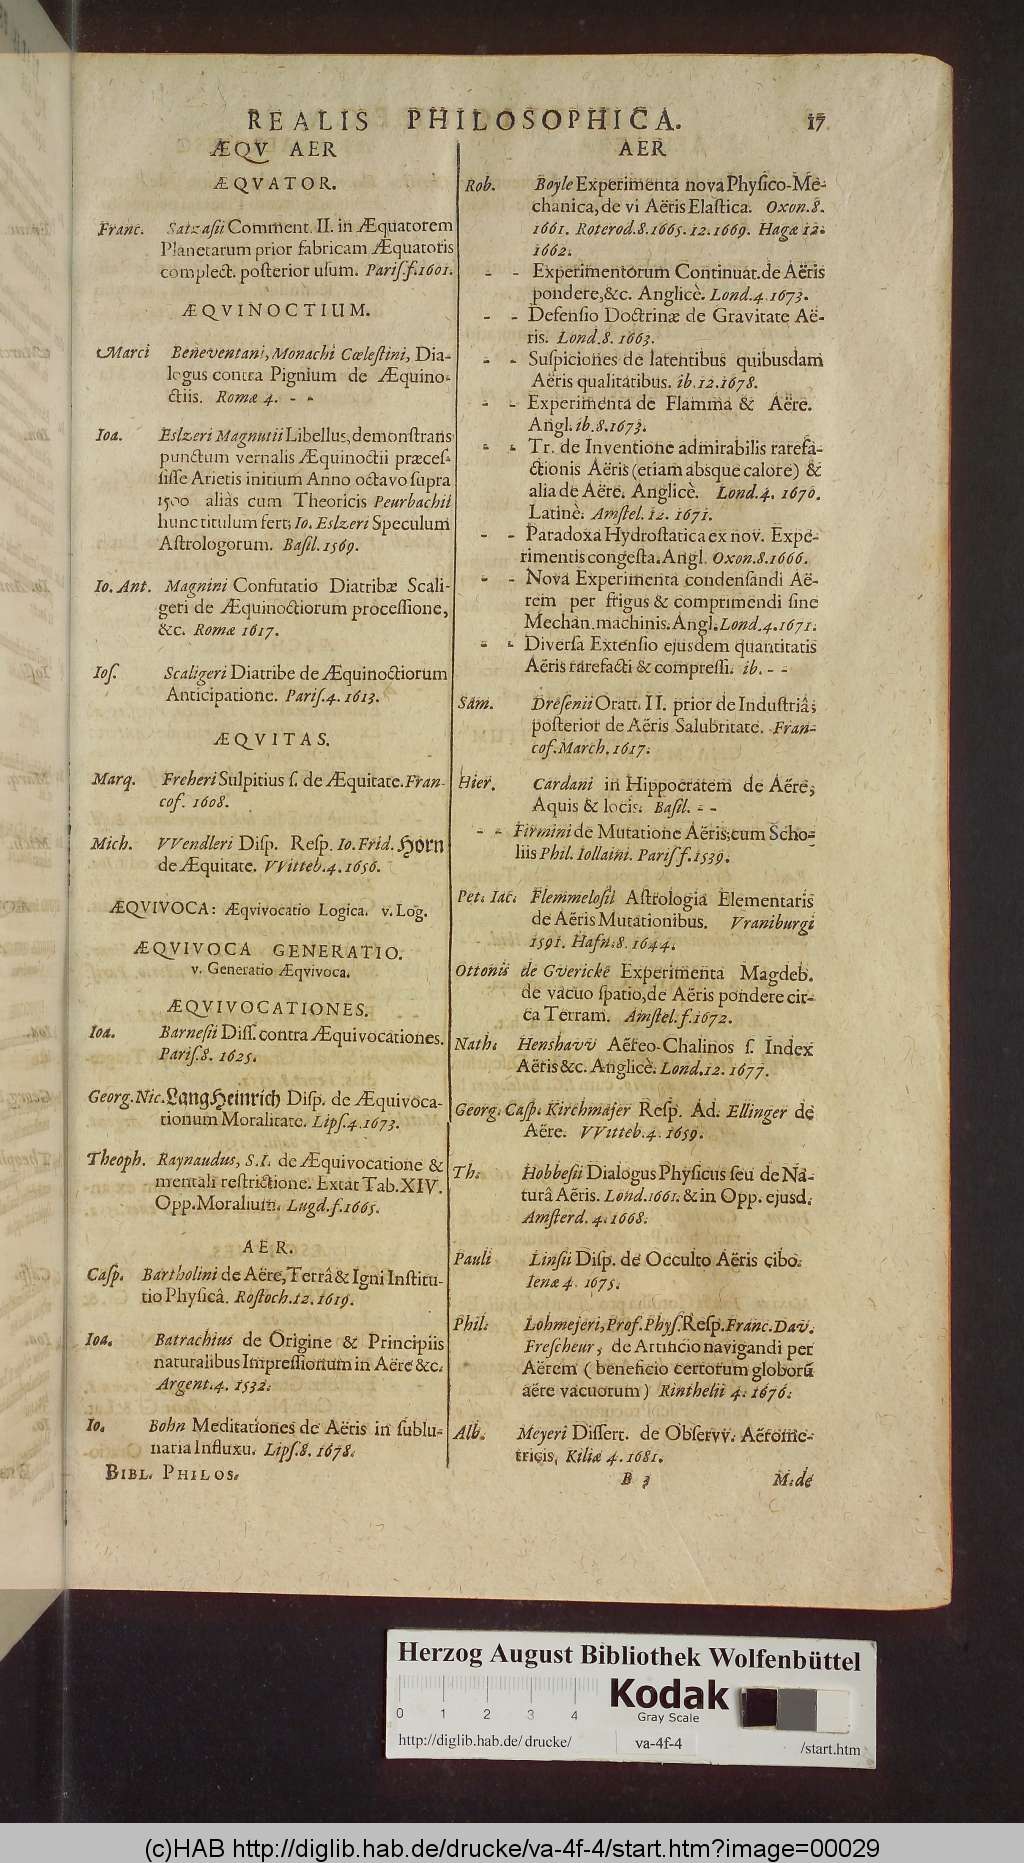 REALIS PHILOSOPHICA. 17
ÆQV AER
ÆQVATOR.
Franc. Satzasii Comment. II. in Æquatorem
Planetarum prior fabricam Æquatoris
complect. posterior usum. Paris.f.1601.
ÆQVINOCTIUM.
Marci Beneventani, Monachi Cœlestini, Dia-
logus contra Pignium de Æquino-
ctiis. Romæ 4. - -
Ioa. Eslzeri Magnutii Libellus, demonstrans
punctum vernalis Æquinoctii præces-
sisse Arietis initium Anno octavo supra
1500 aliàs cum Theoricis Peurbachii
hunc titulum fert; Io. Eslzeri Speculum
Astrologorum. Basil. 1569.
Io. Ant. Magnini Confutatio Diatribæ Scali-
geri de Æquinoctiorum processione,
&c. Romæ 1617.
Ios. Scaligeri Diatribe de Æquinoctiorum
Anticipatione. Paris.4. 1613.
ÆQVITAS.
Marq. Freheri Sulpitius s. de Æquitate. Fran-
cof. 1608.
Mich. VVendleri Disp. Resp. Io. Frid. Horn
de Æquitate. VVitteb.4.1656.
ÆQVIVOCA: Æqvivocatio Logica. v. Log.
ÆQVIVOCA GENERATIO.
v. Generatio Æqvivoca.
ÆQVIVOCATIONES.
Ioa. Barnesii Diss. contra Æquivocationes.
Paris.8. 1625.
Georg. Nic. LangHeinrich Disp. de Æquivoca-
tionum Moralitate. Lips.4.1673.
Theoph. Raynaudus, S.I. de Æquivocatione &
mentali restrictione. Extat Tab. XIV.
Opp. Moralium. Lugd.f.1665.
AER.
Casp. Bartholini de Aëre, Terrâ & Igni Institu-
tio Physicâ. Rostoch.12.1619.
Ioa. Batrachius de Origine & Principiis
naturalibus Impressionum in Aëre &c.
Argent.4. 1532.
Io. Bohn Meditationes de Aëris in sublu-
naria Influxu. Lips.8. 1678.
BIBL. PHILOS.
AER
Rob. Boyle Experimenta nova Physico-Me-
chanica, de vi Aëris Elastica. Oxon.8.
1661. Roterod.8.1665.12.1669. Hagæ 12.
1662.
- - Experimentorum Continuat. de Aëris
pondere, &c. Anglicè. Lond.4.1673.
- - Defensio Doctrinæ de Gravitate Aë-
ris. Lond.8. 1663.
- - Suspiciones de latentibus quibusdam
Aëris qualitatibus. ib.12.1678.
- - Experimenta de Flamma & Aëre.
Angl. ib.8.1673.
- - Tr. de Inventione admirabilis rarefa-
ctionis Aëris (etiam absque calore) &
alia de Aëre. Anglicè. Lond.4. 1670.
Latinè. Amstel. 12. 1671.
- - Paradoxa Hydrostatica ex nov. Expe-
rimentis congesta. Angl. Oxon.8.1666.
- - Nova Experimenta condensandi Aë-
rem per frigus & comprimendi sine
Mechan. machinis. Angl. Lond.4.1671.
- - Diversa Extensio ejusdem quantitatis
Aëris rarefacti & compressi. ib. - -
Sam. Dresenii Oratt. II. prior de Industriâ;
posterior de Aëris Salubritate. Fran-
cof. March. 1617.
Hier. Cardani in Hippocratem de Aëre,
Aquis & locis. Basil. - -
- - Firmini de Mutatione Aëris; cum Scho-
liis Phil. Iollaini. Paris f.1539.
Pet. Iac. Flemmelosii Astrologia Elementaris
de Aëris Mutationibus. Vraniburgi
1591. Hafn.8. 1644.
Ottonis de Gvericke Experimenta Magdeb.
de vacuo spatio, de Aëris pondere cir-
ca Terram. Amstel.f.1672.
Nath. Henshavv Aëreo-Chalinos s. Index
Aëris &c. Anglicè. Lond.12. 1677.
Georg. Casp. Kirchmajer Resp. Ad. Ellinger de
Aëre. VVitteb.4. 1659.
Th. Hobbesii Dialogus Physicus seu de Na-
turâ Aëris. Lond.1661. & in Opp. ejusd.
Amsterd. 4. 1668.
Pauli Linsii Disp. de Occulto Aëris cibo.
Ienæ 4. 1675.
Phil. Lohmejeri, Prof. Phys. Resp. Franc. Dav.
Frescheur, de Artificio navigandi per
Aërem (beneficio certorum globorũ
aëre vacuorum) Rinthelii 4. 1676.
Alb. Meyeri Dissert. de Observv. Aërome-
tricis, Kiliæ 4. 1681.
B 3 M. de
Herzog August Bibliothek Wolfenbüttel
0 1 2 3 4
Kodak
Gray Scale
http://diglib.hab.de/drucke/ va-4f-4 /start.htm
(c)HAB http://diglib.hab.de/drucke/va-4f-4/start.htm?image=00029